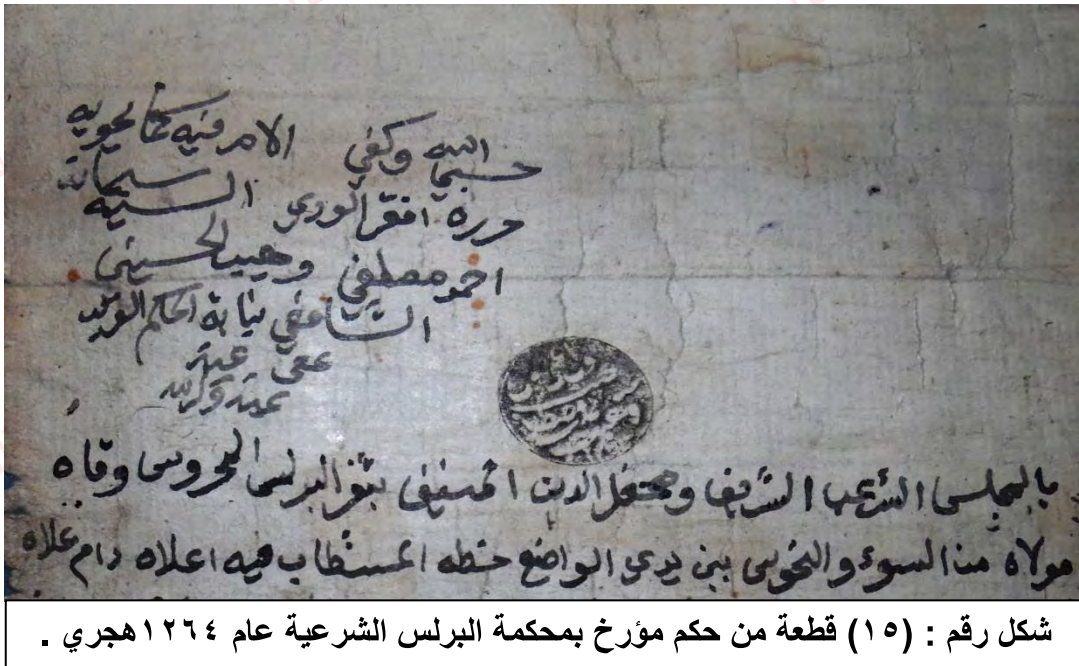 حسبي الله وكفي الامر فيه كما يحويه
حرره افقر الوري اليه سبحانه
احمد مصطفي وهيب الحسيني
الشافعي نيابة الحاكم
عفي عنه
بالمجلس الشرعي الشريف ومحفل الدين المنيف بثغر البرلس المحروس وقاه
مولاه من السوء والنحوس بين يدي الواضع خطه المستطاب فيه اعلاه دام علاه
شكل رقم : (١٥) قطعة من حكم مؤرخ بمحكمة البرلس الشرعية عام ١٢٦٤هجري .